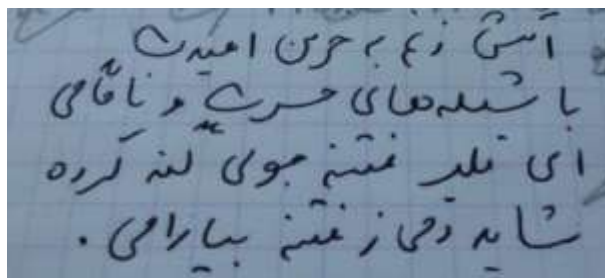 آتش زنم به خرمن امیدت
با شعله‌های حسرت و ناکامی
ای قلب فتنه جوی گنه کرده
شاید دمی ز فتنه بیارامی .